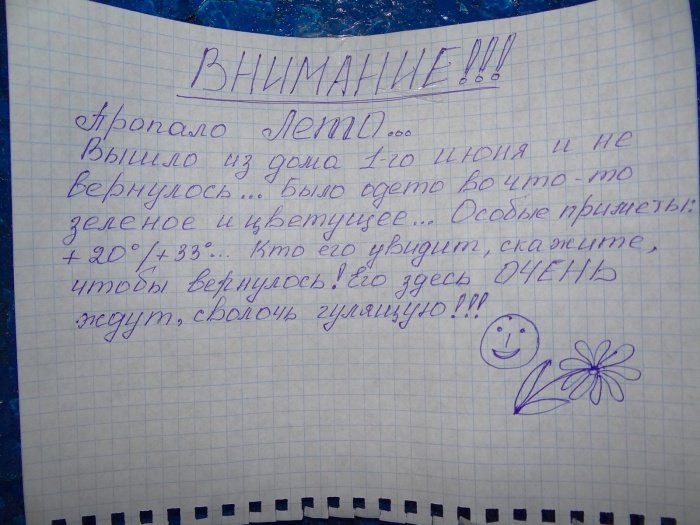 ВНИМАНИЕ!!!
Пропало Лето...
Вышло из дома 1-го июня и не
вернулось... Было одето во что-то
зеленое и цветущее... Особые приметы:
+20°/+33°... Кто его увидит, скажите,
чтобы вернулось! Его здесь ОЧЕНЬ
ждут, сволочь гулящую!!!